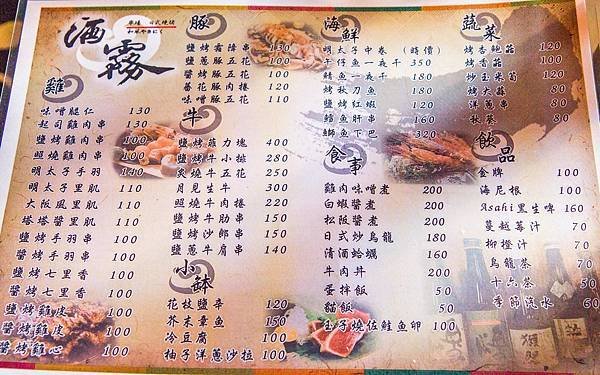 酒霧
串燒 日式燒烤
和風やきにく
雞
味噌腿仁 130
起司雞肉串 130
鹽烤雞肉串 100
照燒雞肉串 100
明太子手羽 140
明太子里肌 110
大阪風里肌 110
塔塔醬里肌 110
鹽烤手羽串 100
醬烤手羽串 100
鹽烤七里香 100
醬烤七里香 100
鹽烤雞皮 100
醬烤雞皮 100
醬烤雞心 100
豚
鹽烤霜降串 130
鹽蔥豚五花 100
醬烤豚五花 100
蕃花豚肉捲 120
味噌豚五花 110
牛
鹽烤菲力塊 400
鹽烤牛小排 280
炙燒牛五花 250
月見生牛 300
照燒牛肉捲 220
鹽烤牛肋串 150
鹽烤沙郎串 150
鹽蔥牛肩串 140
小缽
花枝鹽辛 120
芥末章魚 150
冷豆腐 100
柚子洋蔥沙拉 100
海鮮
明太子中卷 (時價)
午仔魚一夜干 350
鯖魚一夜干 180
烤秋刀魚 180
鹽烤紅蝦 120
鱈魚肝串 160
鰤魚下巴 320
食事
雞肉味噌煮 200
白蝦醬煮 200
松阪醬煮 200
日式炒烏龍 180
清酒蛤蠣 160
牛肉丼 200
蛋拌飯 50
貓飯 50
玉子燒佐鮭魚卵 100
蔬菜
烤杏鮑菇 120
烤香菇 100
炒玉米筍 120
烤大蒜 80
洋蔥串 80
秋葵 80
飲品
金牌 100
海尼根 100
Asahi黑生啤 160
蔓越莓汁 70
柳橙汁 70
烏龍茶 70
十六茶 50
季節流水 60